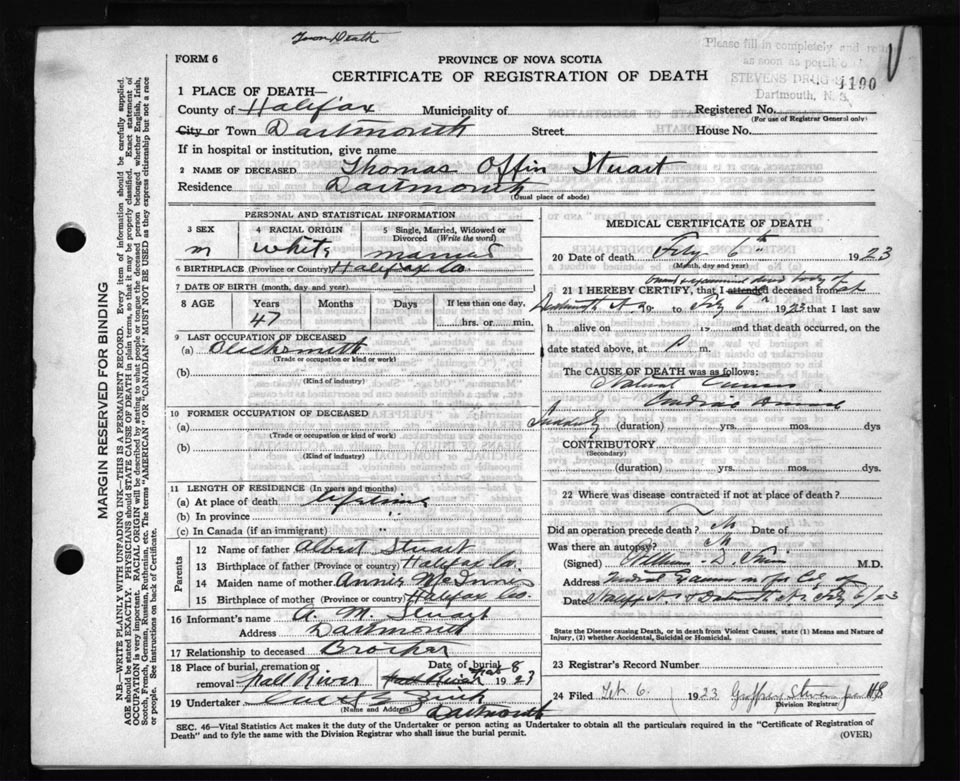 Town Death
FORM 6
PROVINCE OF NOVA SCOTIA
CERTIFICATE OF REGISTRATION OF DEATH
Please fill in completely and return
as soon as possible to
STEVENS DRUG
Dartmouth, N. S.
1190
1 PLACE OF DEATH—
County of Halifax Municipality of Registered No.
(For use of Registrar General only)
City or Town Dartmouth Street House No.
If in hospital or institution, give name
2 NAME OF DECEASED Thomas Offin Stuart
Residence Dartmouth
(Usual place of abode)
PERSONAL AND STATISTICAL INFORMATION
3 SEX 4 RACIAL ORIGIN 5 Single, Married, Widowed or Divorced (Write the word)
m white married
6 BIRTHPLACE (Province or Country) Halifax Co
7 DATE OF BIRTH (month, day, and year)
8 AGE Years Months Days If less than one day,
47 hrs. or min.
9 LAST OCCUPATION OF DECEASED
(a) Blacksmith
(Trade or occupation or kind or work)
(b)
(Kind of industry)
10 FORMER OCCUPATION OF DECEASED
(a)
(Trade or occupation or kind of work)
(b)
(Kind of industry)
11 LENGTH OF RESIDENCE (In years and months)
(a) At place of death lifetime
(b) In province "
(c) In Canada (if an immigrant)
Parents
12 Name of father Albert Stuart
13 Birthplace of father (Province or country) Halifax Co.
14 Maiden name of mother Annie McInnes
15 Birthplace of mother (Province or Country) Halifax Co.
16 Informant's name A. M. Stuart
Address Dartmouth
17 Relationship to deceased Brother
18 Place of burial, cremation or removal Salt River Date of burial 8 1923
19 Undertaker Zink
(Name and Address) Dartmouth
MEDICAL CERTIFICATE OF DEATH
20 Date of death Feby 6th 1923
(Month, day and year)
examined dead body of
21 I HEREBY CERTIFY, that I attended deceased from at
Dartmouth N.S. 19 to Feby 6th 1923 that I last saw
h alive on 19 and that death occurred, on the
date stated above, at P m.
The CAUSE OF DEATH was as follows:
Natural Causes
Cardiac Disease
Suddenly (duration) yrs. mos. dys
CONTRIBUTORY
(Secondary)
(duration) yrs. mos. dys
22 Where was disease contracted if not at place of death?
Did an operation precede death? No Date of
Was there an autopsy? No
(Signed) William D. M.D.
Address Medical Examiner for Co. of
Date Halifax & Dartmouth N.S. Feby 6/23
State the Disease causing Death, or in death from Violent Causes, state (1) Means and Nature of
Injury, (2) whether Accidental, Suicidal or Homicidal.
23 Registrar's Record Number
24 Filed Feb. 6 1923 Geoffrey Stevens
Division Registrar
SEC. 46—Vital Statistics Act makes it the duty of the Undertaker or person acting as Undertaker to obtain all the particulars required in the "Certificate of Registration of
Death" and to fyle the same with the Division Registrar who shall issue the burial permit.
(OVER)
MARGIN RESERVED FOR BINDING
N.B.—WRITE PLAINLY WITH UNFADING INK—THIS IS A PERMANENT RECORD. Every item of information should be carefully supplied.
AGE should be stated EXACTLY. PHYSICIANS should STATE CAUSE OF DEATH in plain terms, so that it may be properly classified. Exact statement of
OCCUPATION is very important. RACIAL ORIGIN will be described by stating to what people or tongue the deceased person belonged whether English, Irish,
Scotch, French, German, Russian, Ruthenian, etc. The terms "AMERICAN" OR "CANADIAN" MUST NOT BE USED as they express citizenship but not a race
or people. See instructions on back of Certificate.